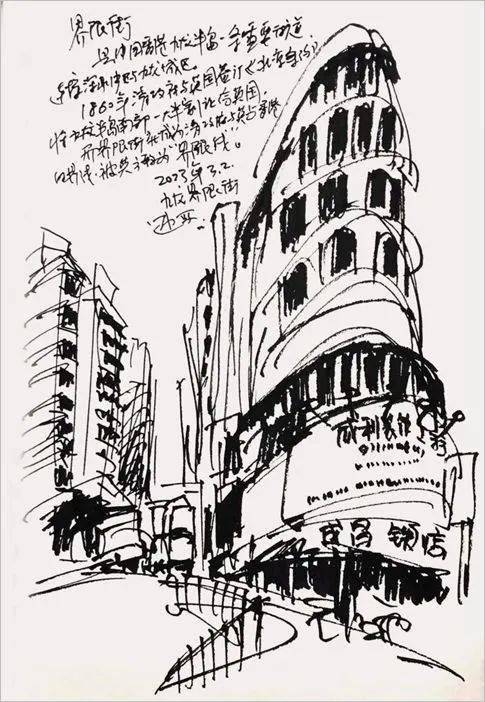 界限街
是中国香港九龙半岛一条重要街道
连接深水埗与九龙城区
1860年清政府与英国签订《北京条约》
将九龙半岛南部一大半割让给英国,
而界限街就成为清政府与英占香港
的界线, 被英方称为"界限线"。
2023年3.2.
九龙界限街
成利装饰
锁店